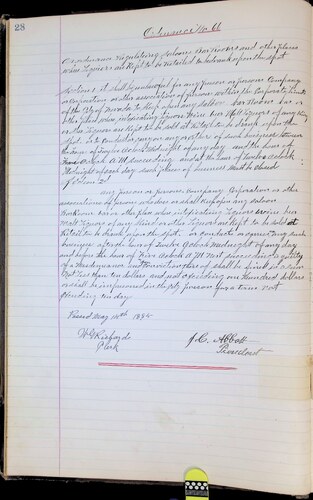 28
Ordinance No. 66
An ordinance regulating Saloons Bar Rooms and other places
where Liquors are Kept to be Retailed to be drank upon the spot
Section 1. it shall be unlawful for any person or persons Company
or Corporation or other association of persons within the Corporate limits
of the City of to Keep open any saloon bar Room bar or
other place where intoxicating Liquors Wine Beer Malt Liquors of any Kind
or other Liquors are Kept to be sold at Retail to be drank upon the
spot or to Conduct or carry on any matters of such business between
the hours of Twelve oclock Midnight of any day and the hour of
oclock A M succeeding and at the hour of twelve oclock
Midnight of each day such place of business must be closed
Section 2
any person or persons, Company Corporation or other
association of persons who does or shall Keep open any saloon
Bar Room bar or other place where intoxicating Liquors wine beer
Malt Liquors of any Kind or other Liquors are Kept to be sold at
Retail to be drank upon the spot. or conducts or carries on any such
business after the hour of twelve oclock midnight of any day
and before the hour of Five oclock A M next succeeding is guilty
of a misdemeanor and on Conviction thereof shall be fined in a sum
not less than ten dollars and not exceeding one Hundred dollars
or shall be imprisoned in the City prison for a term not
Exceeding ten days
Passed May 14th 188
W G Richards
Clerk
J. C. Abbott
President